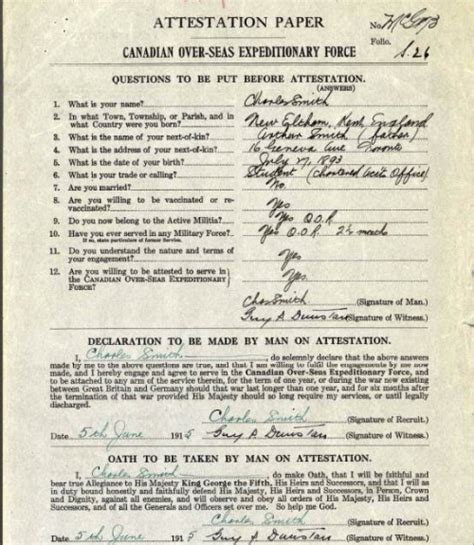 ATTESTATION PAPER
No.
Folio.
CANADIAN OVER-SEAS EXPEDITIONARY FORCE
QUESTIONS TO BE PUT BEFORE ATTESTATION.
(ANSWERS)
1. What is your name? Charles Smith
2. In what Town, Township, or Parish, and in
what Country were you born? New Eltham, Kent, England
3. What is the name of your next-of-kin? Arthur Smith (father)
4. What is the address of your next-of-kin? 16 Geneva Ave Toronto
5. What is the date of your birth? July 17, 1893
6. What is your trade or calling? Student (Chartered Accts Office)
7. Are you married? No.
8. Are you willing to be vaccinated or re-
vaccinated? Yes
9. Do you now belong to the Active Militia? Yes Q.O.R.
10. Have you ever served in any Military Force? Yes Q.O.R. 2½ months
If so, state particulars of former Service.
11. Do you understand the nature and terms of
your engagement? Yes
12. Are you willing to be attested to serve in
the CANADIAN OVER-SEAS EXPEDITIONARY
FORCE? Yes
Chas Smith (Signature of Man.)
Guy A Dunstan (Signature of Witness.)
DECLARATION TO BE MADE BY MAN ON ATTESTATION.
I, Charles Smith, do solemnly declare that the above answers
made by me to the above questions are true, and that I am willing to fulfil the engagements by me now
made, and I hereby engage and agree to serve in the Canadian Over-Seas Expeditionary Force, and
to be attached to any arm of the service therein, for the term of one year, or during the war now existing
between Great Britain and Germany should that war last longer than one year, and for six months after
the termination of that war provided His Majesty should so long require my services, or until legally
discharged.
Charles Smith (Signature of Recruit.)
Date 5th June 1915 Guy A Dunstan (Signature of Witness.)
OATH TO BE TAKEN BY MAN ON ATTESTATION.
I, Charles Smith, do make Oath, that I will be faithful and
bear true Allegiance to His Majesty King George the Fifth, His Heirs and Successors, and that I will as
in duty bound honestly and faithfully defend His Majesty, His Heirs and Successors, in Person, Crown
and Dignity, against all enemies, and will observe and obey all orders of His Majesty, His Heirs and
Successors, and of all the Generals and Officers set over me. So help me God.
Charles Smith (Signature of Recruit.)
Date 5th June 1915 (Signature of Witness.)